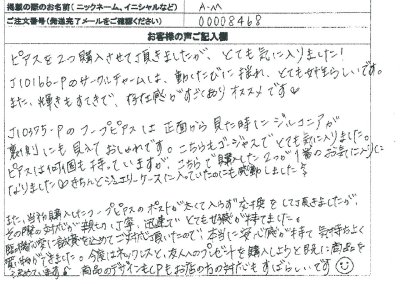 掲載の際のお名前(ニックネーム、イニシャルなど) A-M
ご注文番号(発送完了メールをご確認ください) 00008468
お客様の声ご記入欄
ピアスを2つ購入させて頂きましたが、とても気に入りました!
J10166-Pのサークルチャームは、動くたびに揺れ、とても女性らしいです。
また、輝きもすてきで、存在感がすごくありオススメです
J10375-Pのフープピアスは正面から見た時にジルコニアが
裏側にも見えておしゃれです。こちらもゴージャスでとても気に入りました。
ピアスは何個も持っていますが、こちらで購入した2つが1番のお気に入りに
なりました きちんとジュエリーケースに入っていたのにも感動しました
また、当初購入したフープピアスのポストが太くて入らず交換をして頂きましたが、
その際の対応が親切、丁寧、迅速でとても好感が持てました。
臨機応変に誠意を込めてご対応頂いたので、本当に安心感が持て気持ちよく
買い物ができました。今度はネックレスと、友人へのプレゼントを購入しようと既に商品を
決めています 商品のデザインもCPもお店の方の対応もすばらしいです